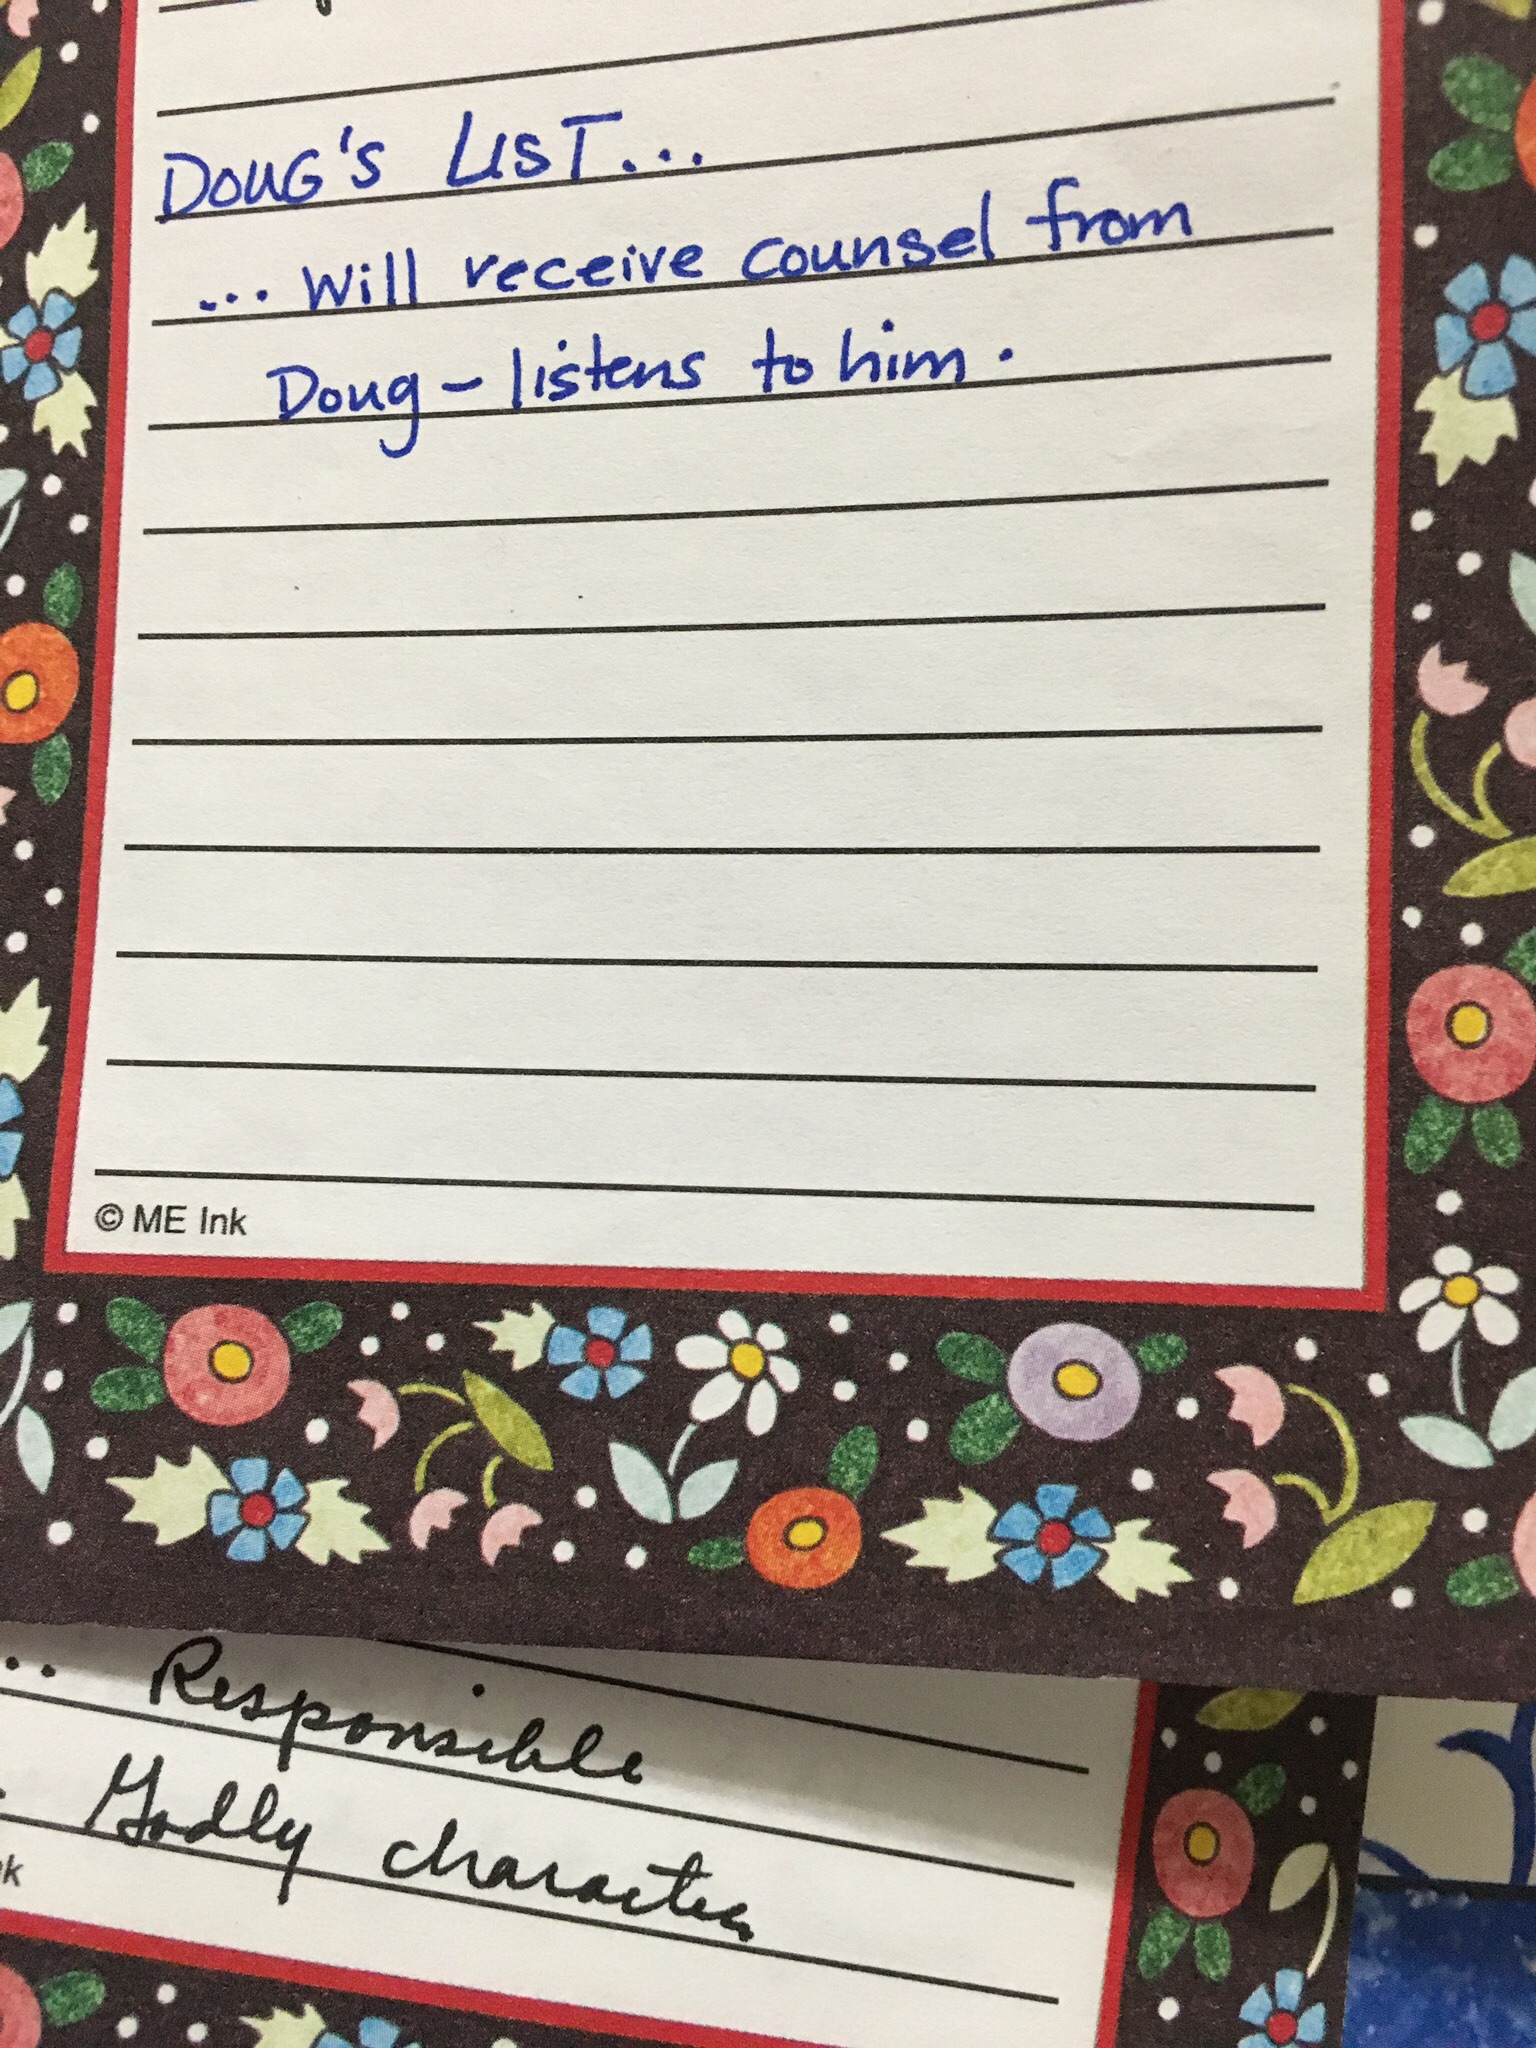 DOUG'S LIST...
... Will receive counsel from
Doug – listens to him.
© ME Ink
.. Responsible
Godly character
k